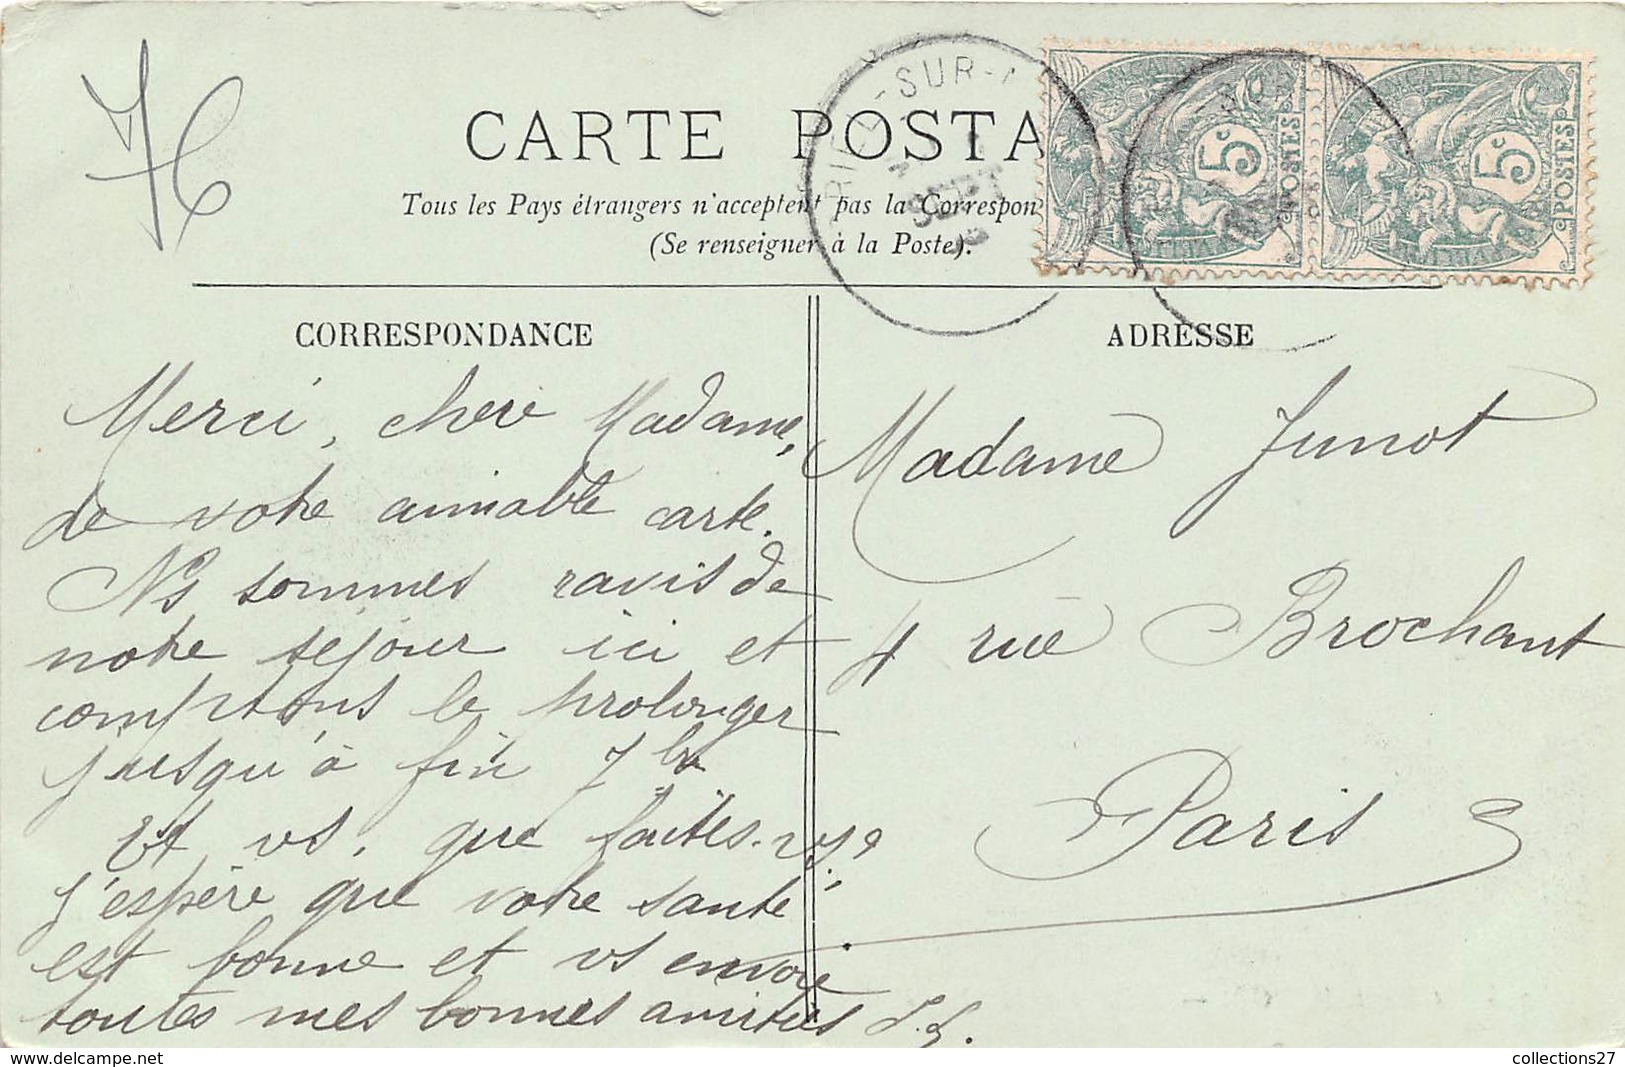 76
CARTE POSTA
Tous les Pays étrangers n'acceptent pas la Correspon
(Se renseigner à la Poste).
-SUR-
SEPT
5c
POSTES
5c
POSTES
CORRESPONDANCE
Merci, chère Madame,
de votre aimable carte.
Ns sommes ravis de
notre séjour ici et
comptons le prolonger
jusqu'à fin 7bre
Et vs, que faites-vs?
J'espère que votre santé
est bonne et vs envoie
toutes mes bonnes amitiés
ADRESSE
Madame Junot
4 rue Brochant
Paris
collections27